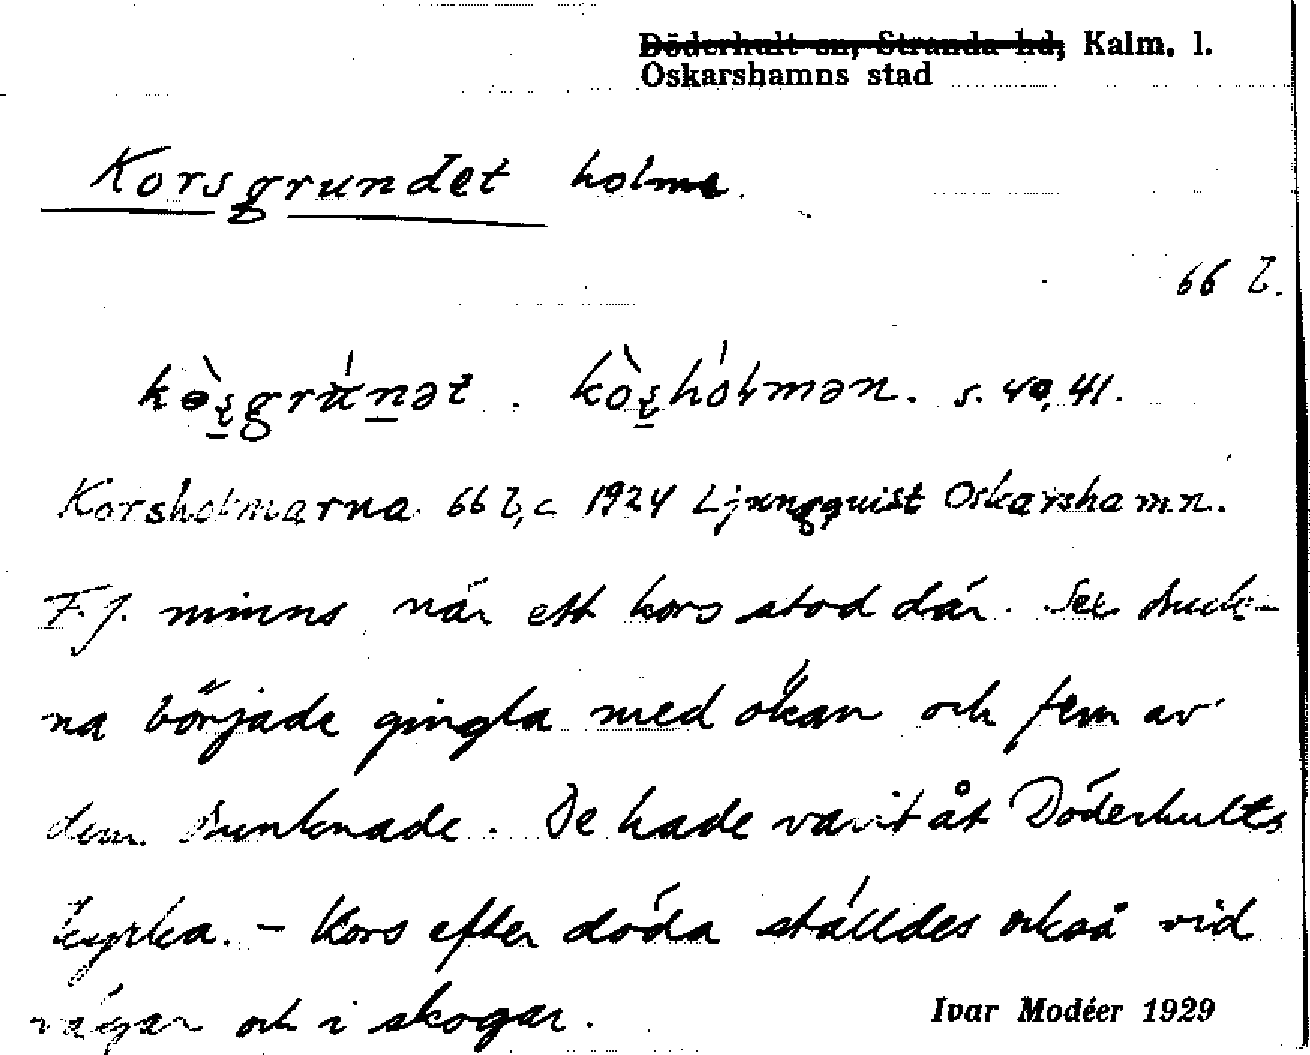 Döderhult sn, Stranda hd, Kalm. l.
Oskarshamns stad
Korsgrundet holme.
66 b.
s. 40, 41.
Korsholmarna 66 b, c 1924 Ljungquist Oskarshamn.
F. J. minns när ett kors stod där. Sex druck-
na började gingla med ökan och fem av
dem drunknade. De hade varit åt Döderhults
kyrka. – Kors efter döda ställdes också vid
vägar och i skogar.
Ivar Modéer 1929